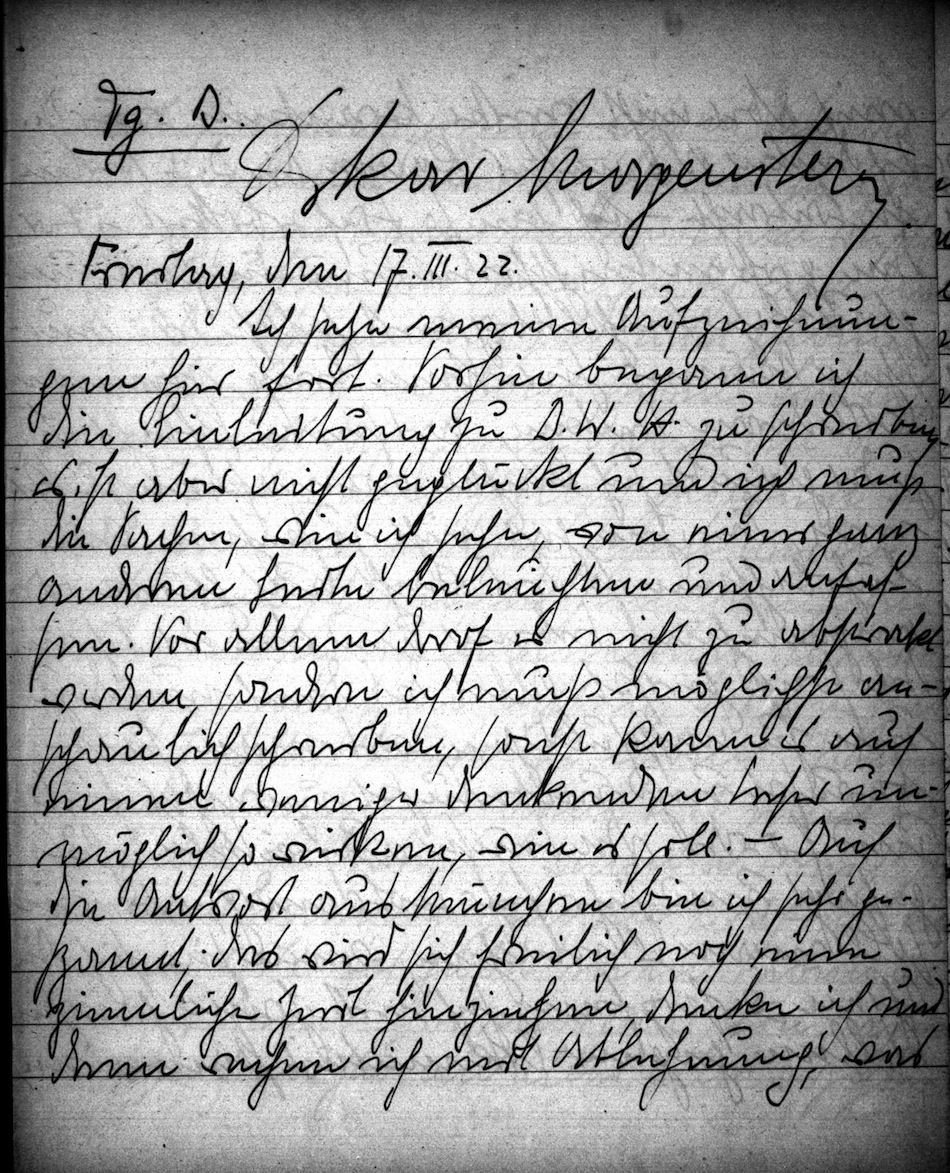 Tg. D.
Oskar Morgenstern
Freitag, den 17.III.22.
Ich setze meine Aufzeichnun-
gen hier fort. Vorhin begann ich
die Einleitung zu D.W. H. zu schreiben,
es ist aber nicht geglückt und ich muß
die Sachen, wie ich sehe, von einer ganz
anderen Seite beleuchten und anfas-
sen. Vor allem darf es nicht zu abstrakt
werden, sondern ich muß möglichst an-
schaulich schreiben, sonst kann es auf
einen weniger denkenden Leser un-
möglich so wirken, wie es soll. – Auf
die Antwort aus München bin ich sehr ge-
spannt; das wird sich freilich noch eine
ziemliche Zeit hinziehen, denke ich und
dann rechne ich mit Ablehnung, was